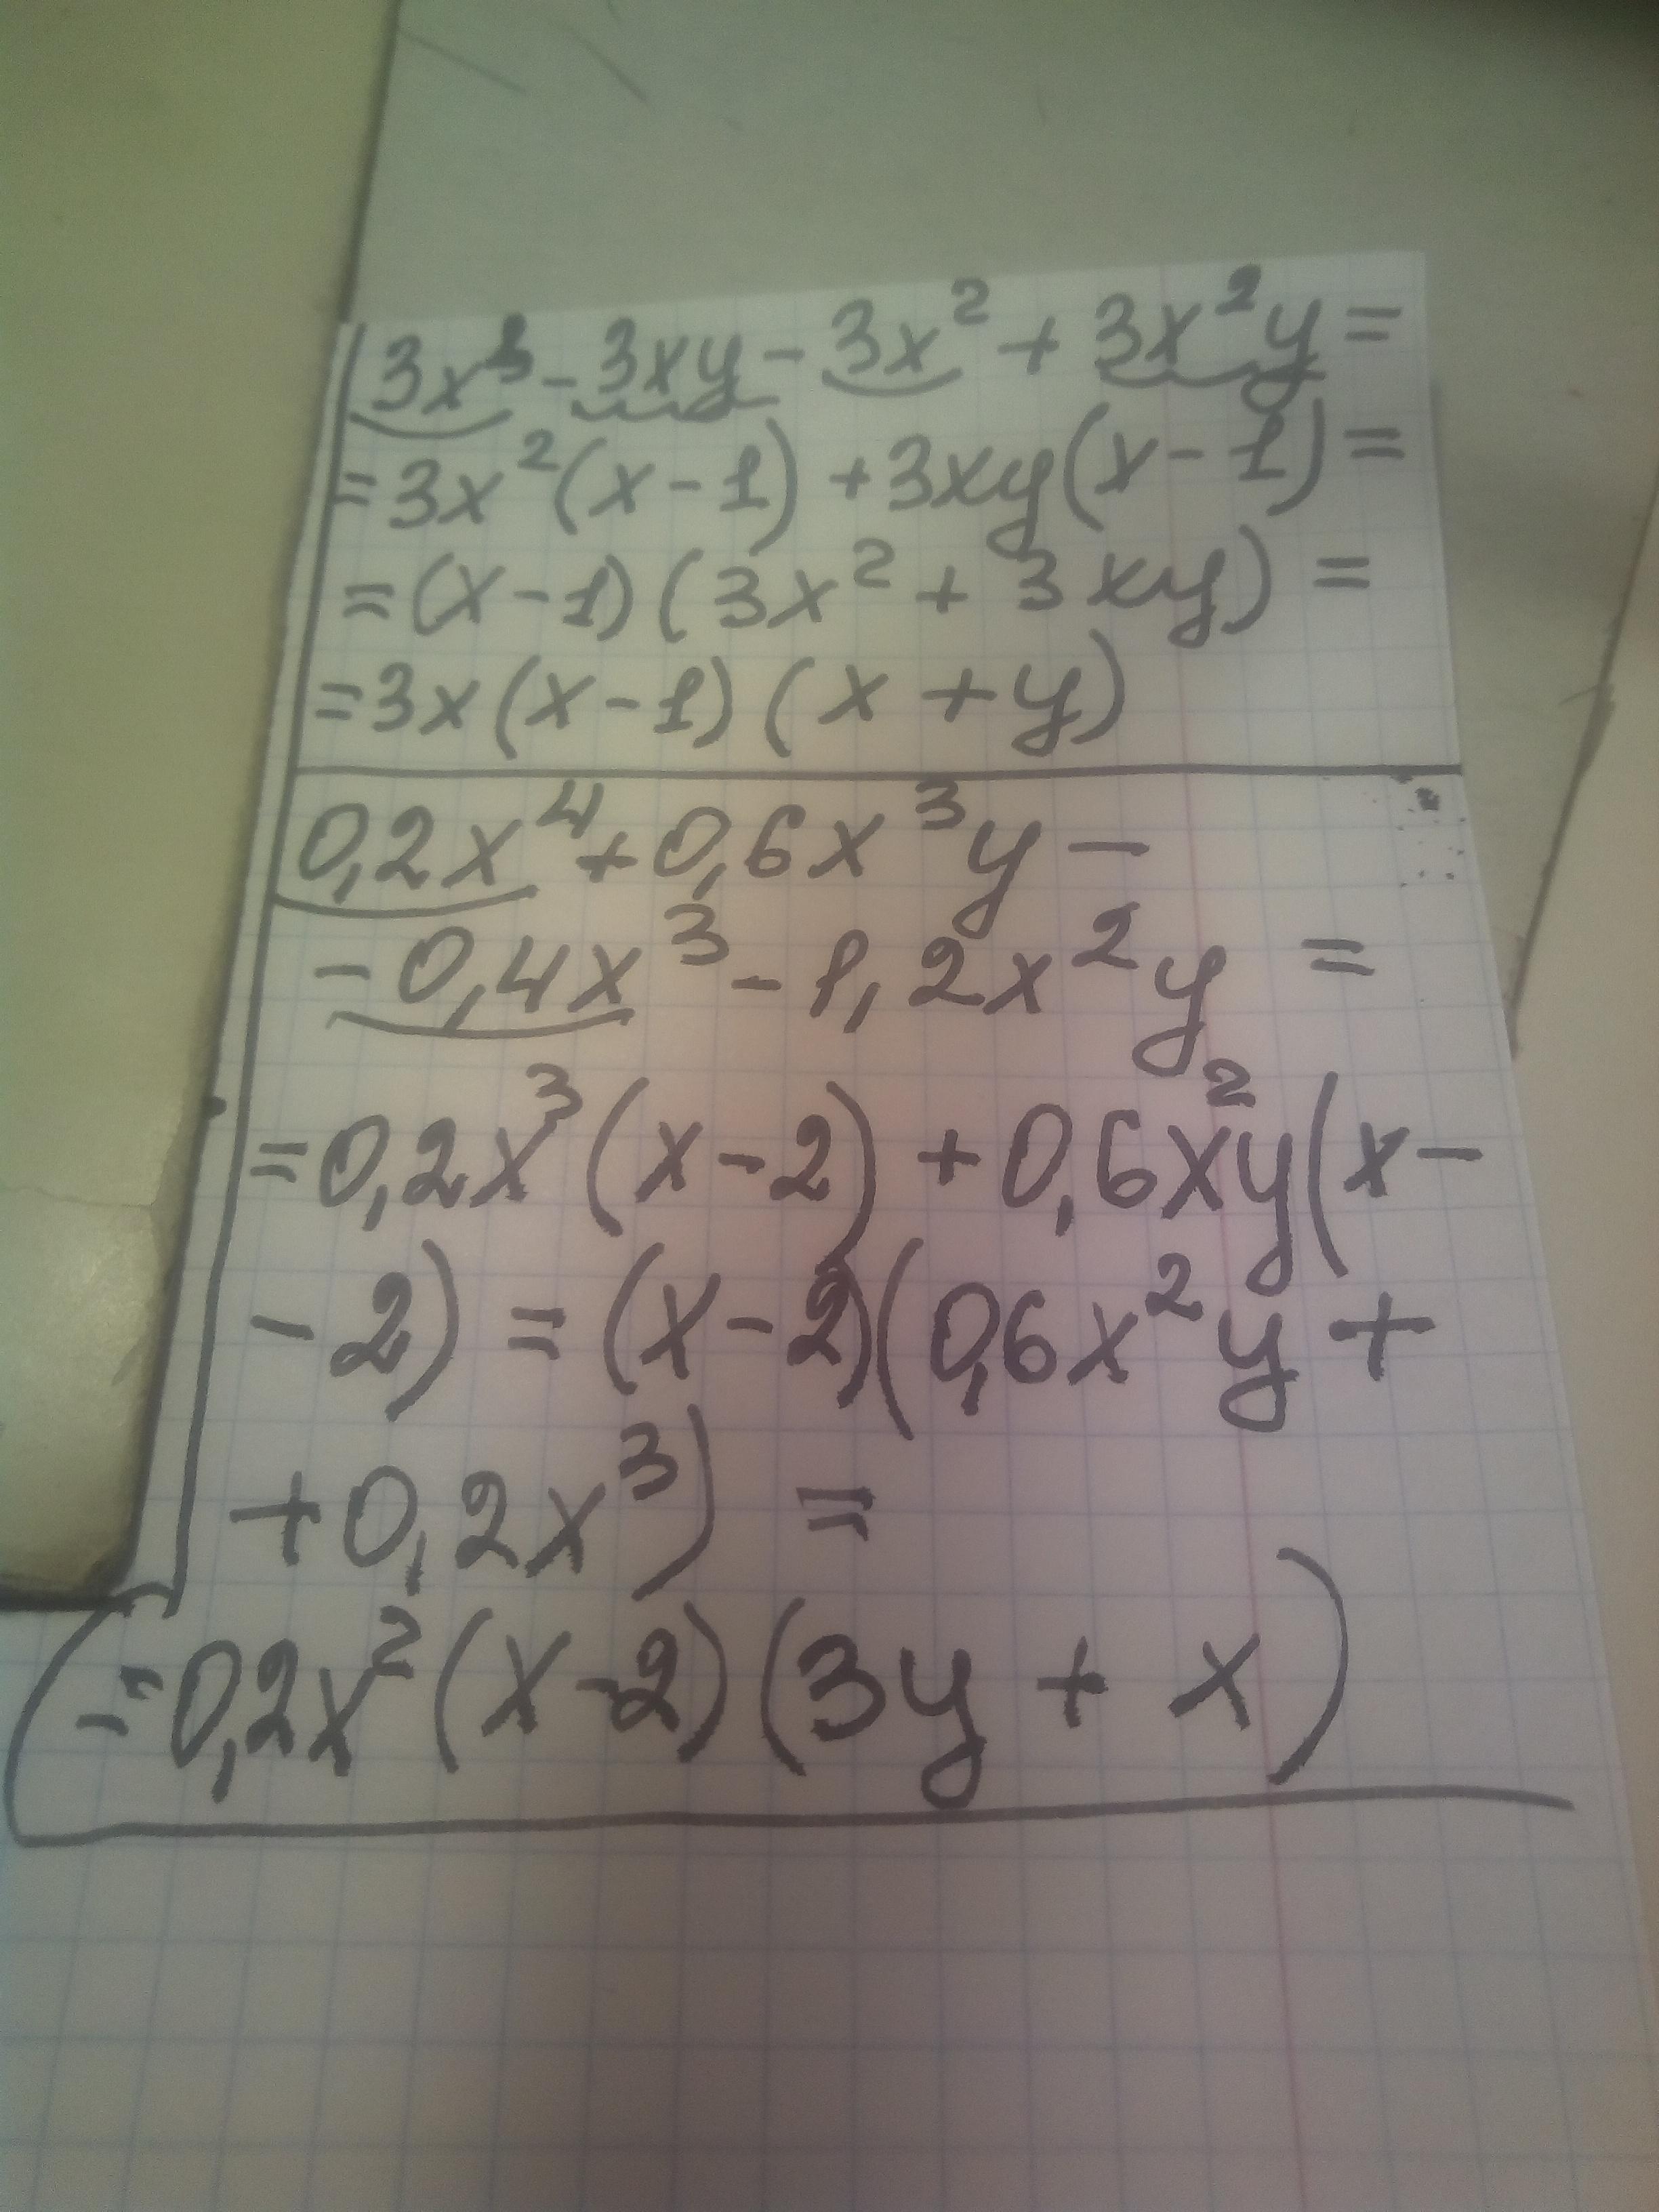 3x³ - 3xy - 3x² + 3x²y =
= 3x²(x - 1) + 3xy(x - 1) =
= (x - 1)(3x² + 3xy) =
= 3x(x - 1)(x + y)
0,2x⁴ + 0,6x³y -
- 0,4x³ - 1,2x²y =
= 0,2x³(x - 2) + 0,6x²y(x -
- 2) = (x - 2)(0,6x²y +
+ 0,2x³) =
= 0,2x²(x - 2)(3y + x)